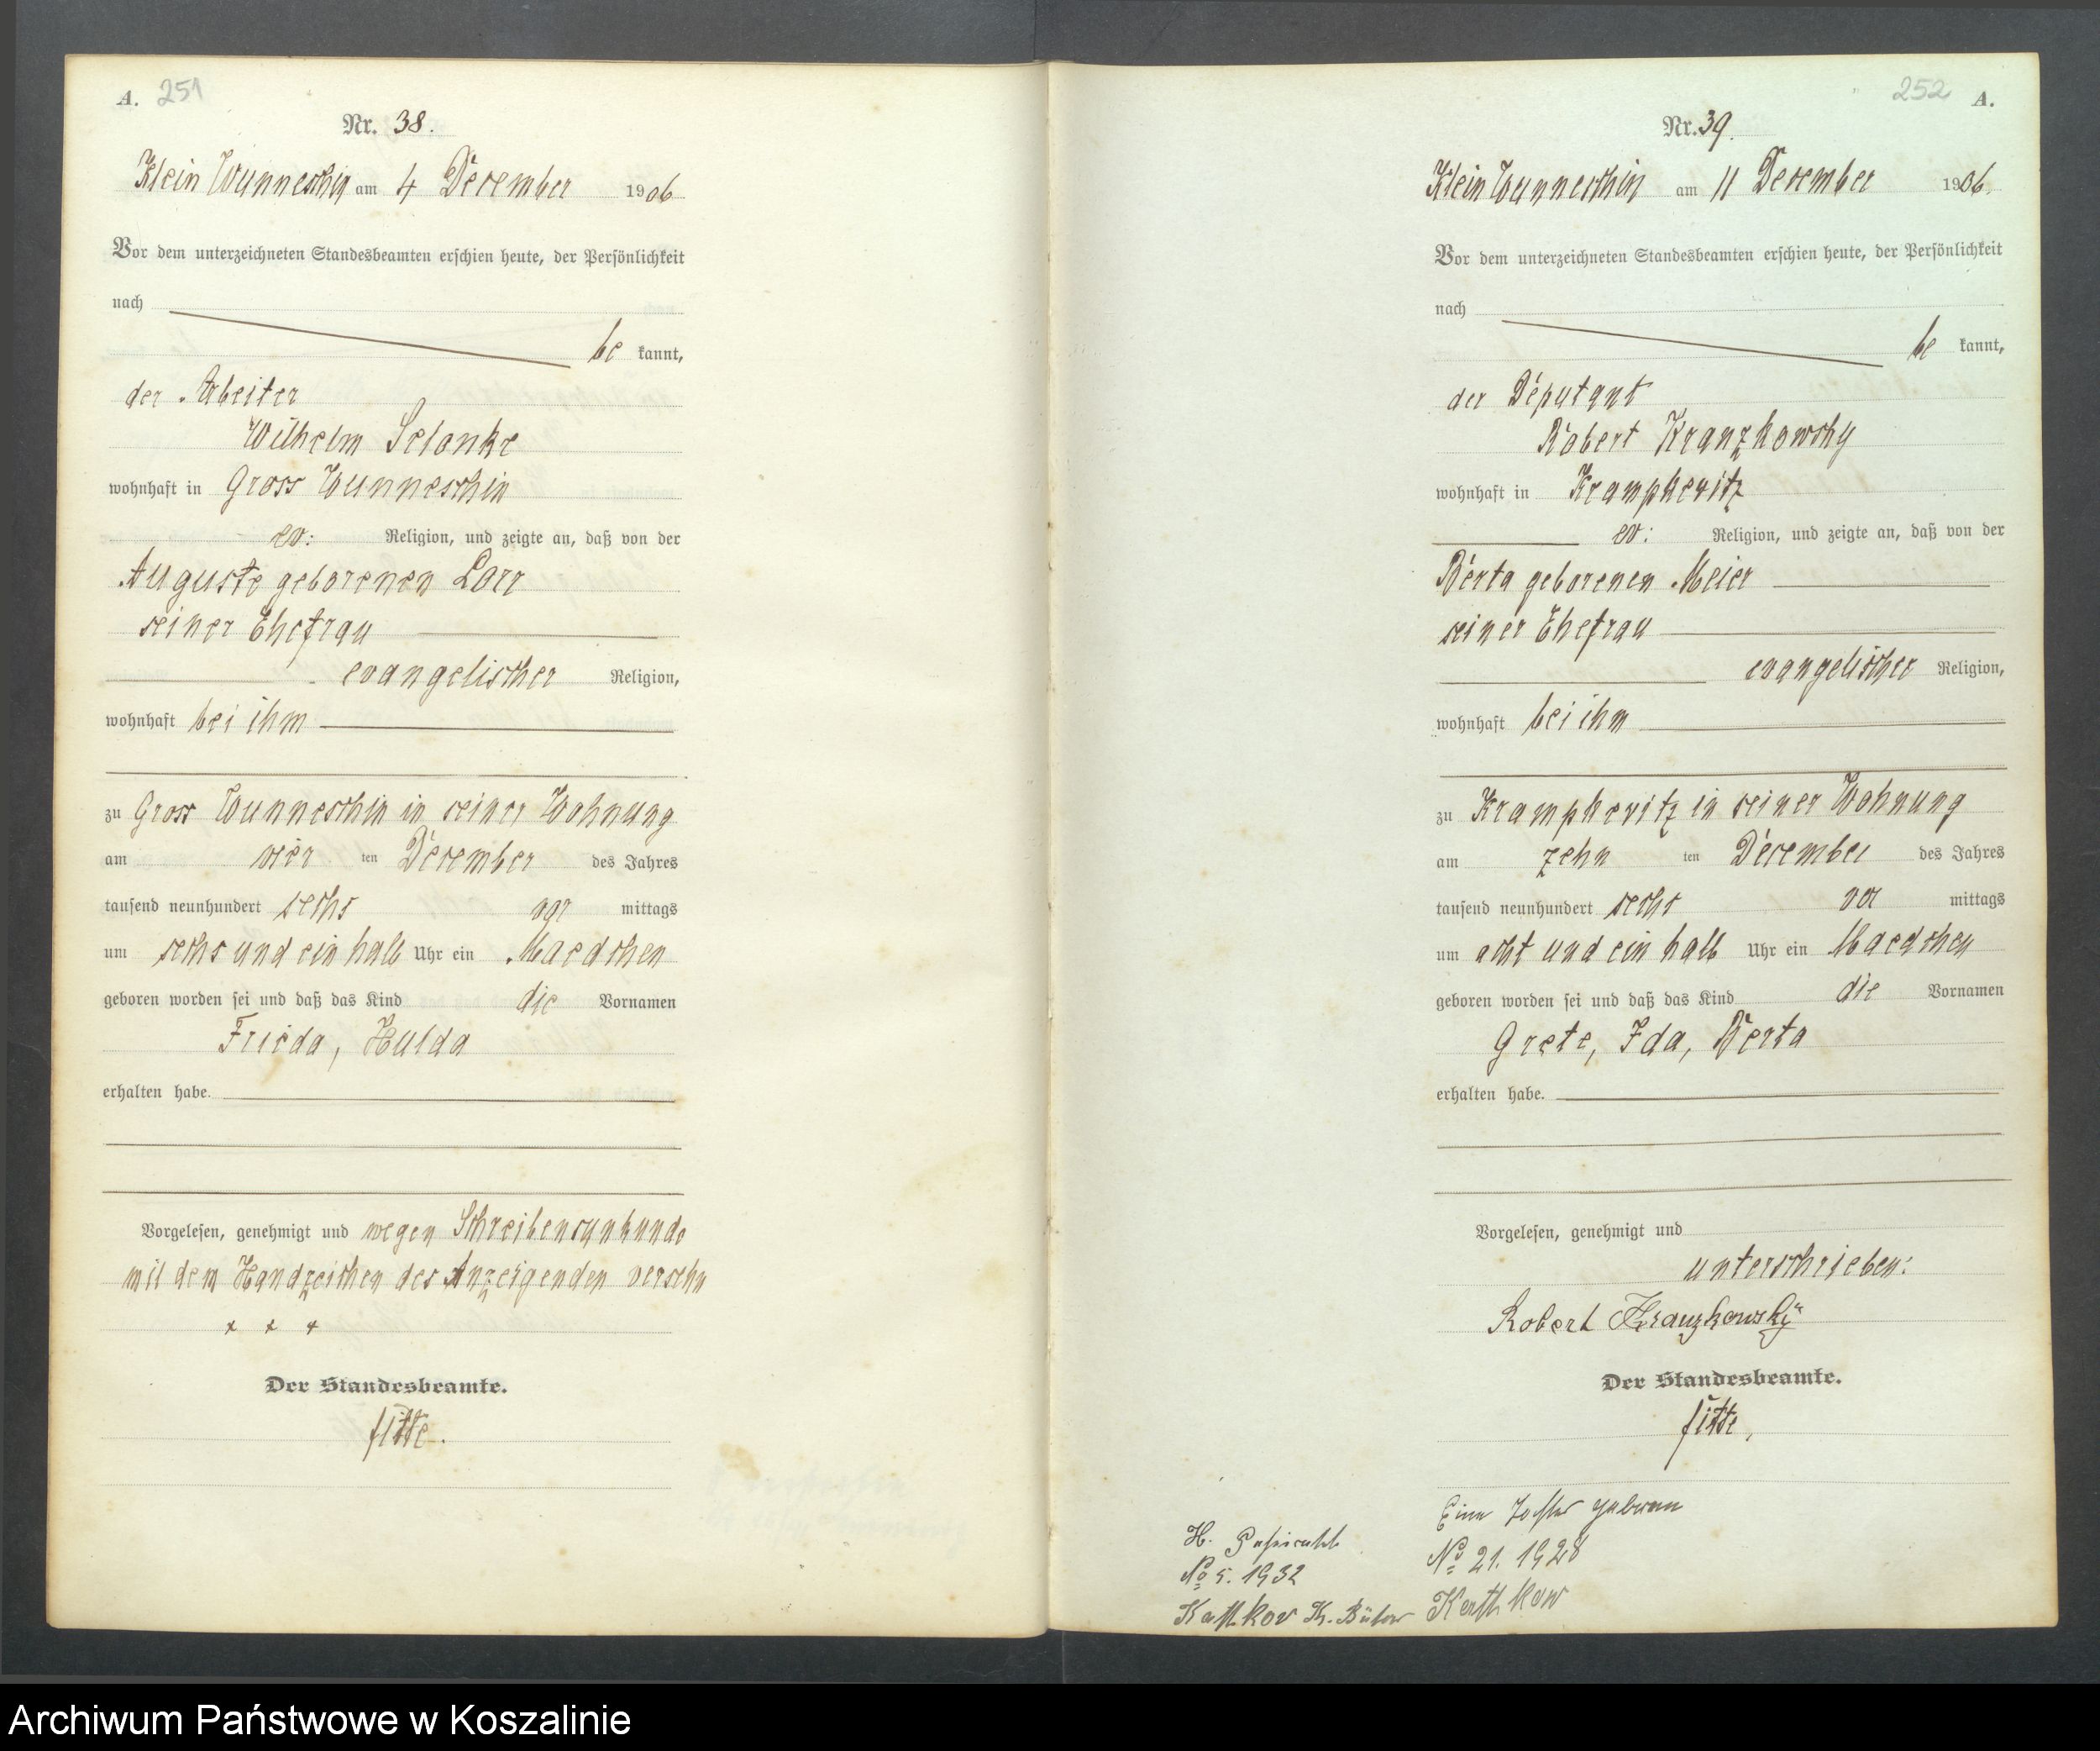 A. 251
Nr. 38.
Klein Wunneschin am 4 December 1906
Vor dem unterzeichneten Standesbeamten erschien heute, der Persönlichkeit
nach
be kannt,
der Arbeiter
Wilhelm Selonke
wohnhaft in Gross Wunneschin
ev: Religion, und zeigte an, daß von der
Auguste geborenen Lorr
seiner Ehefrau
evangelischer Religion,
wohnhaft bei ihm
zu Gross Wunneschin in seiner Wohnung
am vier ten December des Jahres
tausend neunhundert sechs vor mittags
um sechs und ein halb Uhr ein Maedchen
geboren worden sei und daß das Kind die Vornamen
Frieda, Hulda
erhalten habe.
Vorgelesen, genehmigt und wegen Schreibensunkunde
mit dem Handzeichen des Anzeigenden versehn
x x x
Der Standesbeamte.
252 A.
Nr. 39.
Klein Wunneschin am 11 December 1906.
Vor dem unterzeichneten Standesbeamten erschien heute, der Persönlichkeit
nach
be kannt,
der Deputant
Robert Kranzkowsky
wohnhaft in Krampkevitz
ev: Religion, und zeigte an, daß von der
Berta geborenen Meier
seiner Ehefrau
evangelischer Religion,
wohnhaft bei ihm
zu Krampkevitz in seiner Wohnung
am zehn ten December des Jahres
tausend neunhundert sechs vor mittags
um acht und ein halb Uhr ein Maedchen
geboren worden sei und daß das Kind die Vornamen
Grete, Ida, Berta
erhalten habe.
Vorgelesen, genehmigt und
unterschrieben:
Robert Kranzkowsky
Der Standesbeamte.
Eine Tochter geboren
No 21. 1928
H.
No 5. 1932
Archiwum Państwowe w Koszalinie